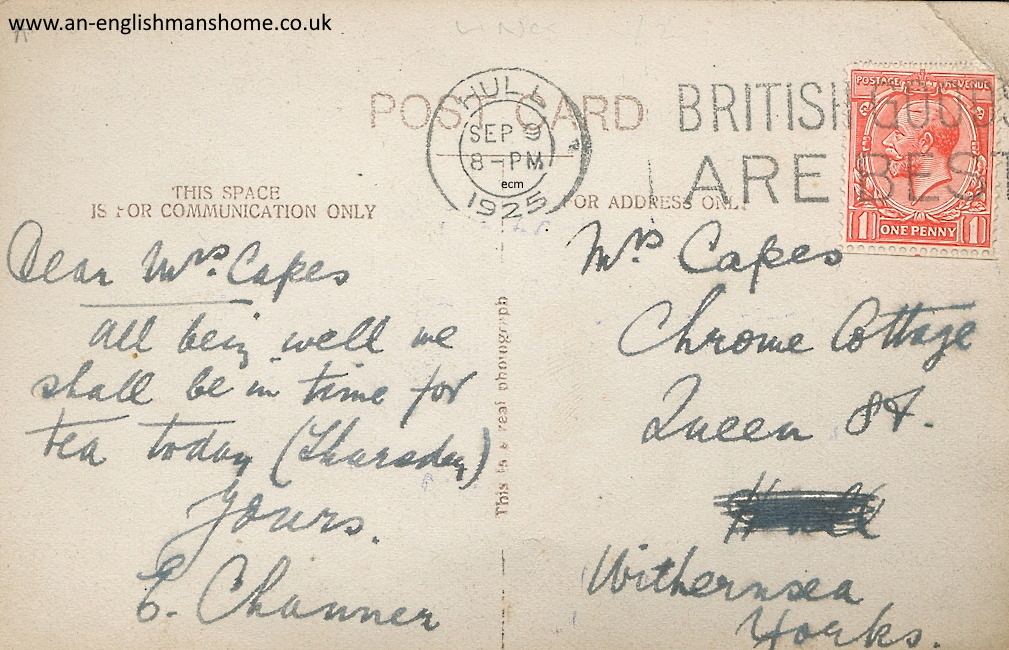 www.an-englishmanshome.co.uk
POST CARD
HULL
SEP 9
8-PM
ecm
1925
BRITISH GOODS
ARE BEST
POSTAGE REVENUE
1 ONE PENNY 1
THIS SPACE
IS FOR COMMUNICATION ONLY
FOR ADDRESS ONLY
Dear Mrs. Capes
All being well we
shall be in time for
tea today (Thursday)
Yours.
E. Channer
This is a real photograph
Mrs Capes
Chrome Cottage
Queen St.
Hull
Withernsea
Yorks.